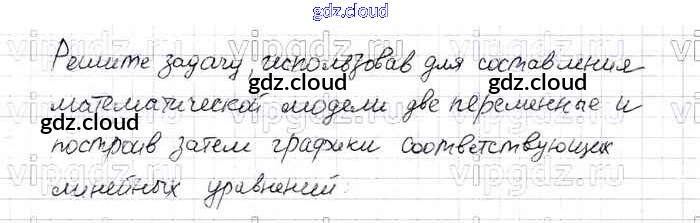 gdz.cloud
Решите задачу, использовав для составления
gdz.cloud gdz.cloud
математической модели две переменные и
gdz.cloud gdz.cloud
построив затем графики соответствующих
линейных уравнений: